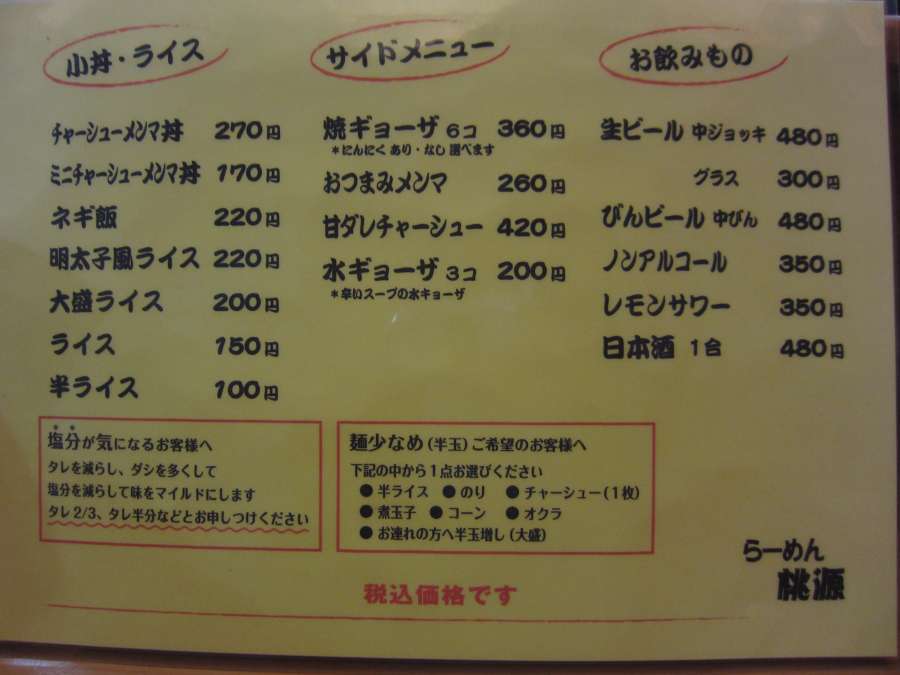 小丼・ライス
チャーシューメンマ丼 270円
ミニチャーシューメンマ丼 170円
ネギ飯 220円
明太子風ライス 220円
大盛ライス 200円
ライス 150円
半ライス 100円
サイドメニュー
焼ギョーザ 6コ 360円
*にんにく あり・なし 選べます
おつまみメンマ 260円
甘ダレチャーシュー 420円
水ギョーザ 3コ 200円
*辛いスープの水ギョーザ
お飲みもの
生ビール 中ジョッキ 480円
グラス 300円
びんビール 中びん 480円
ノンアルコール 350円
レモンサワー 350円
日本酒 1合 480円
塩分が気になるお客様へ
タレを減らし、ダシを多くして
塩分を減らして味をマイルドにします
タレ2/3、タレ半分などとお申しつけください
麺少なめ(半玉)ご希望のお客様へ
下記の中から1点お選びください
●半ライス ●のり ●チャーシュー(1枚)
●煮玉子 ●コーン ●オクラ
●お連れの方へ半玉増し(大盛)
らーめん
桃源
税込価格です